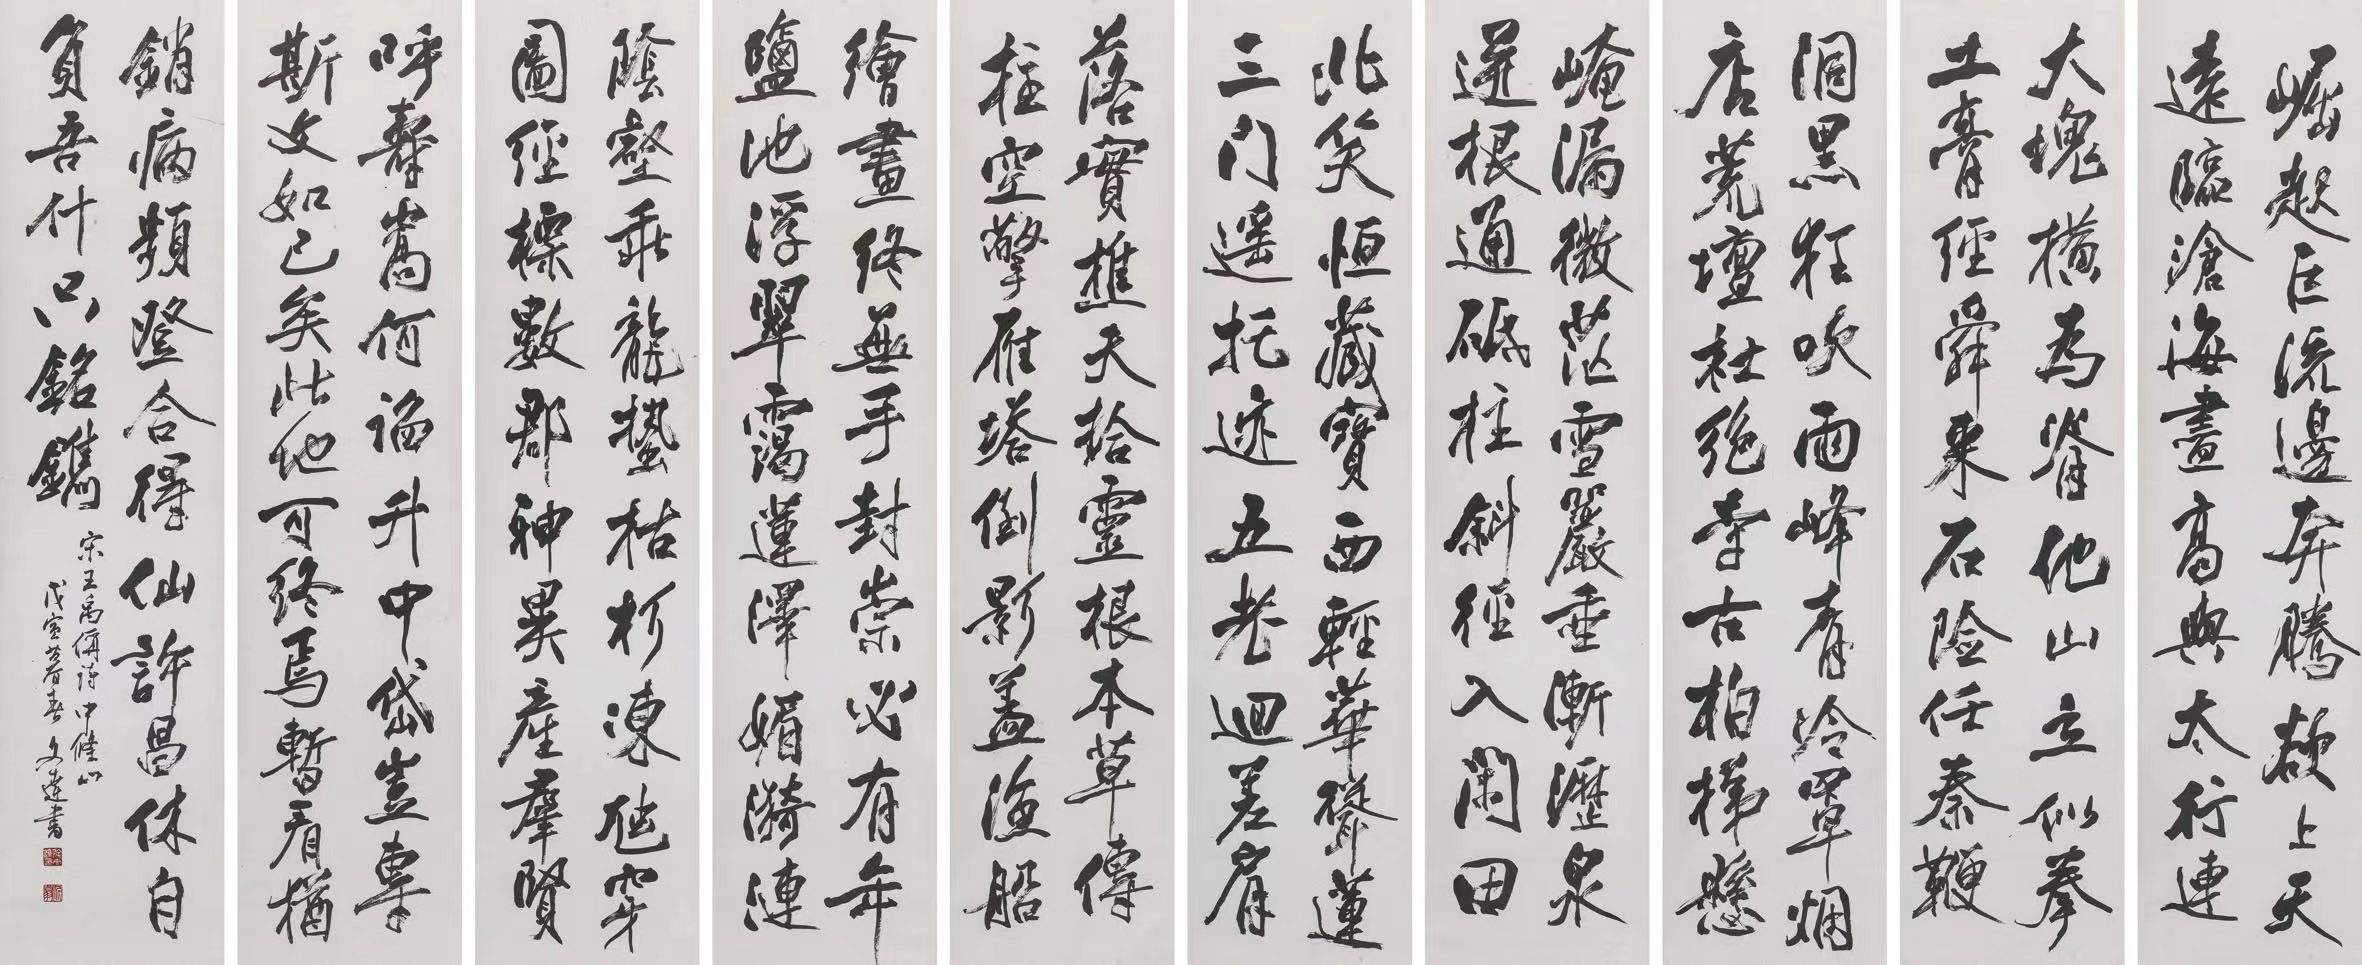 崛起巨流邊奔騰欲上天
遠臨滄海盡高與太行連
大塊橫為脊他山立似拳
土膏經舜東石險任秦鞭
洞黑狂吹雨峰青冷罩烟
店荒壇社絕李古柏梯懸
崦漏微茫雪巖垂漸瀝泉
迸根通砥柱斜徑入閑田
北笑恒藏寶西輕華聳蓮
三門遥托迹五老迴差肩
落實樵夫拾靈根本草傳
柱空擎雁塔倒影蓋漁船
繪畫終無手封崇必有年
鹽池浮翠靄蓮澤媚漪漣
陰壑乖龍蟄枯杉凍虺穿
圖經標數郡神異產羣賢
呼壽嵩何諂升中岱豈專
斯文如已矣此地可終焉暫看猶
銷病頻登合得仙許昌休自
負吾什只銘鐫
宋王禹偁詩中條山
戊寅暮春 文蓮書